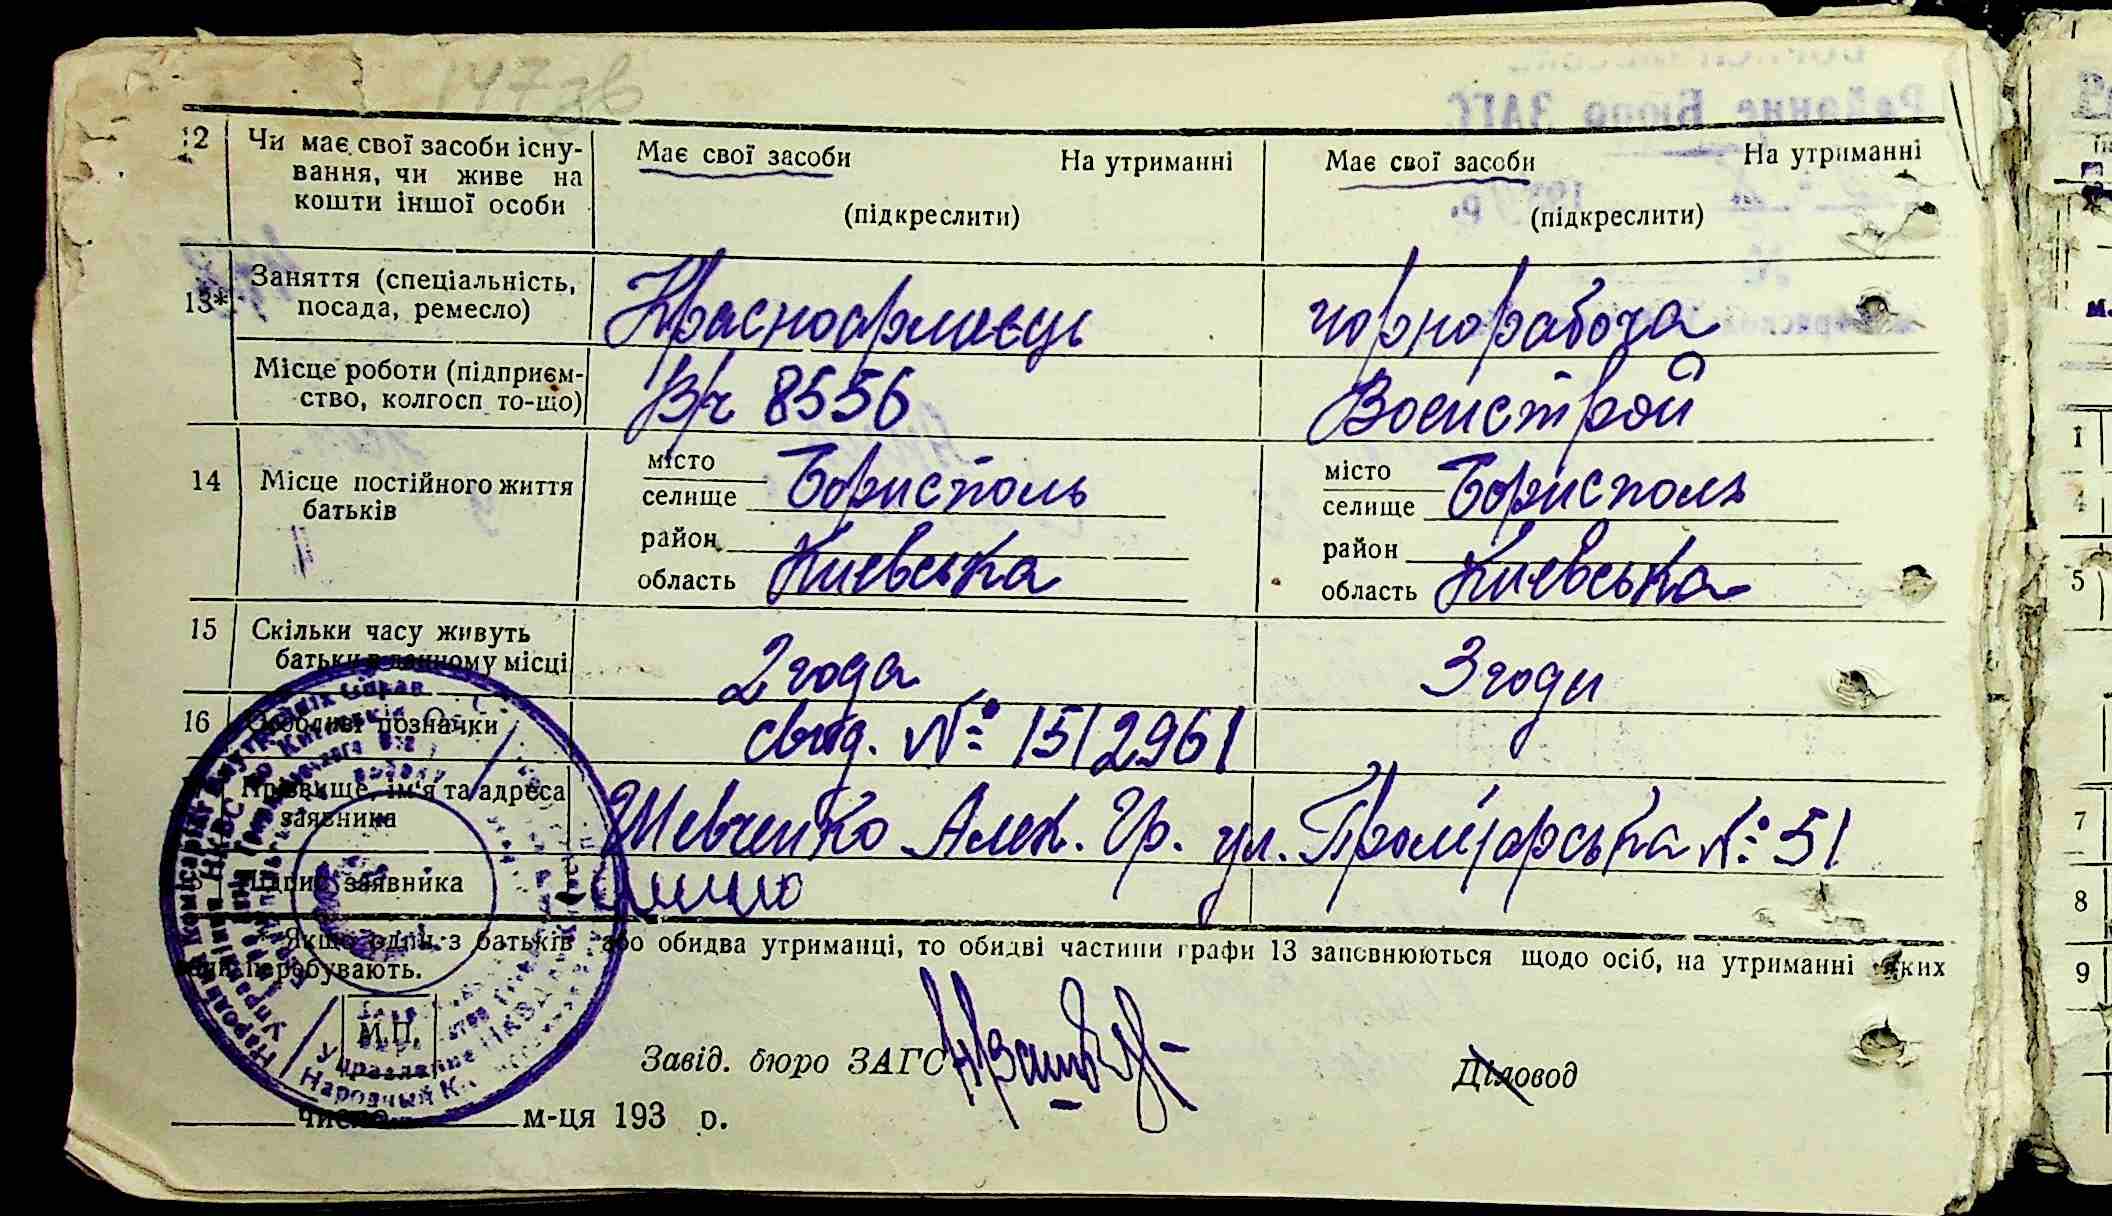 147зв
12 Чи має свої засоби існу- Має свої засоби На утриманні Має свої засоби На утриманні
вання, чи живе на
кошти іншої особи (підкреслити) (підкреслити)
13* Заняття (спеціальність, Красноармаєць чорнорабоча
посада, ремесло)
Місце роботи (підприєм- В/ч 8556 Воєнстрой
ство, колгосп то-що)
14 Місце постійного життя місто місто
батьків селище Борисполь селище Борисполь
район район
область Киевська область Киевська
15 Скільки часу живуть 2 года 3 годи
батьки в данному місці
16 Особливі позначки свид. № 1512961
Прізвище, ім'я та адреса Шевченко Алек. Гр. ул. Пролетарська № 51
заявника
Підпис заявника
* Якщо один з батьків або обидва утриманці, то обидві частини графи 13 заповнюються щодо осіб, на утриманні яких
вони перебувають.
М.П.
Завід. бюро ЗАГС Діловод
число м-ця 193 р.
Районне Бюро ЗАГС
1
4
5
7
8
9